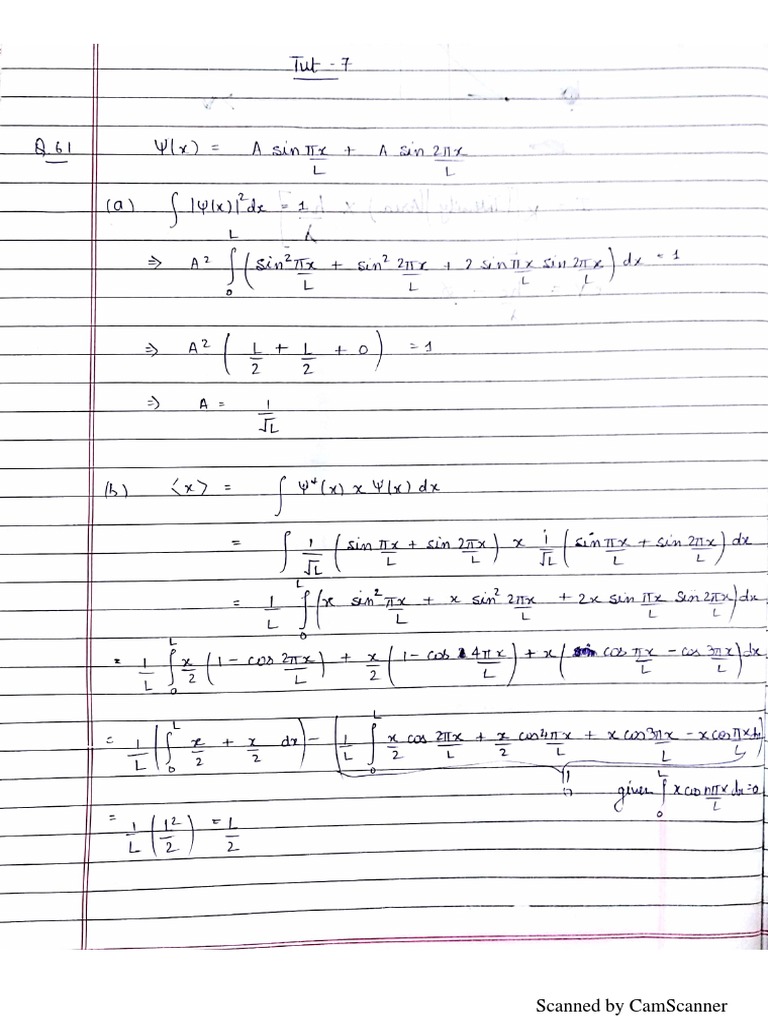 Tut - 7
Q.61 Ψ(x) = A sin πx/L + A sin 2πx/L
(a) ∫ |Ψ(x)|² dx = 1
⇒ A² ∫₀ᴸ (sin² πx/L + sin² 2πx/L + 2 sin πx/L sin 2πx/L) dx = 1
⇒ A² (L/2 + L/2 + 0) = 1
⇒ A = 1/√L
(b) <x> = ∫ Ψ*(x) x Ψ(x) dx
= ∫ 1/√L (sin πx/L + sin 2πx/L) x 1/√L (sin πx/L + sin 2πx/L) dx
= 1/L ∫₀ᴸ (x sin² πx/L + x sin² 2πx/L + 2x sin πx/L sin 2πx/L) dx
= 1/L ∫₀ᴸ x/2 (1 - cos 2πx/L) + x/2 (1 - cos 4πx/L) + x (cos πx/L - cos 3πx/L) dx
= 1/L (∫₀ᴸ x/2 + x/2 dx) - (1/L ∫₀ᴸ x/2 cos 2πx/L + x/2 cos 4πx/L + x cos 3πx/L - x cos πx/L dx)
given ∫₀ᴸ x cos nπx/L dx = 0
= 1/L (L²/2) = L/2
Scanned by CamScanner